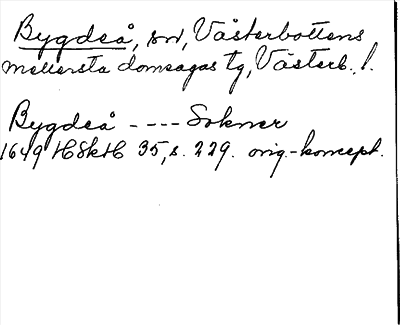 Bygdeå, sn, Västerbottens
mellersta domsagas tg, Västerb. l.
Bygdeå - - - - Sokner
1649 HSkH 35, s. 229. orig.-koncept.